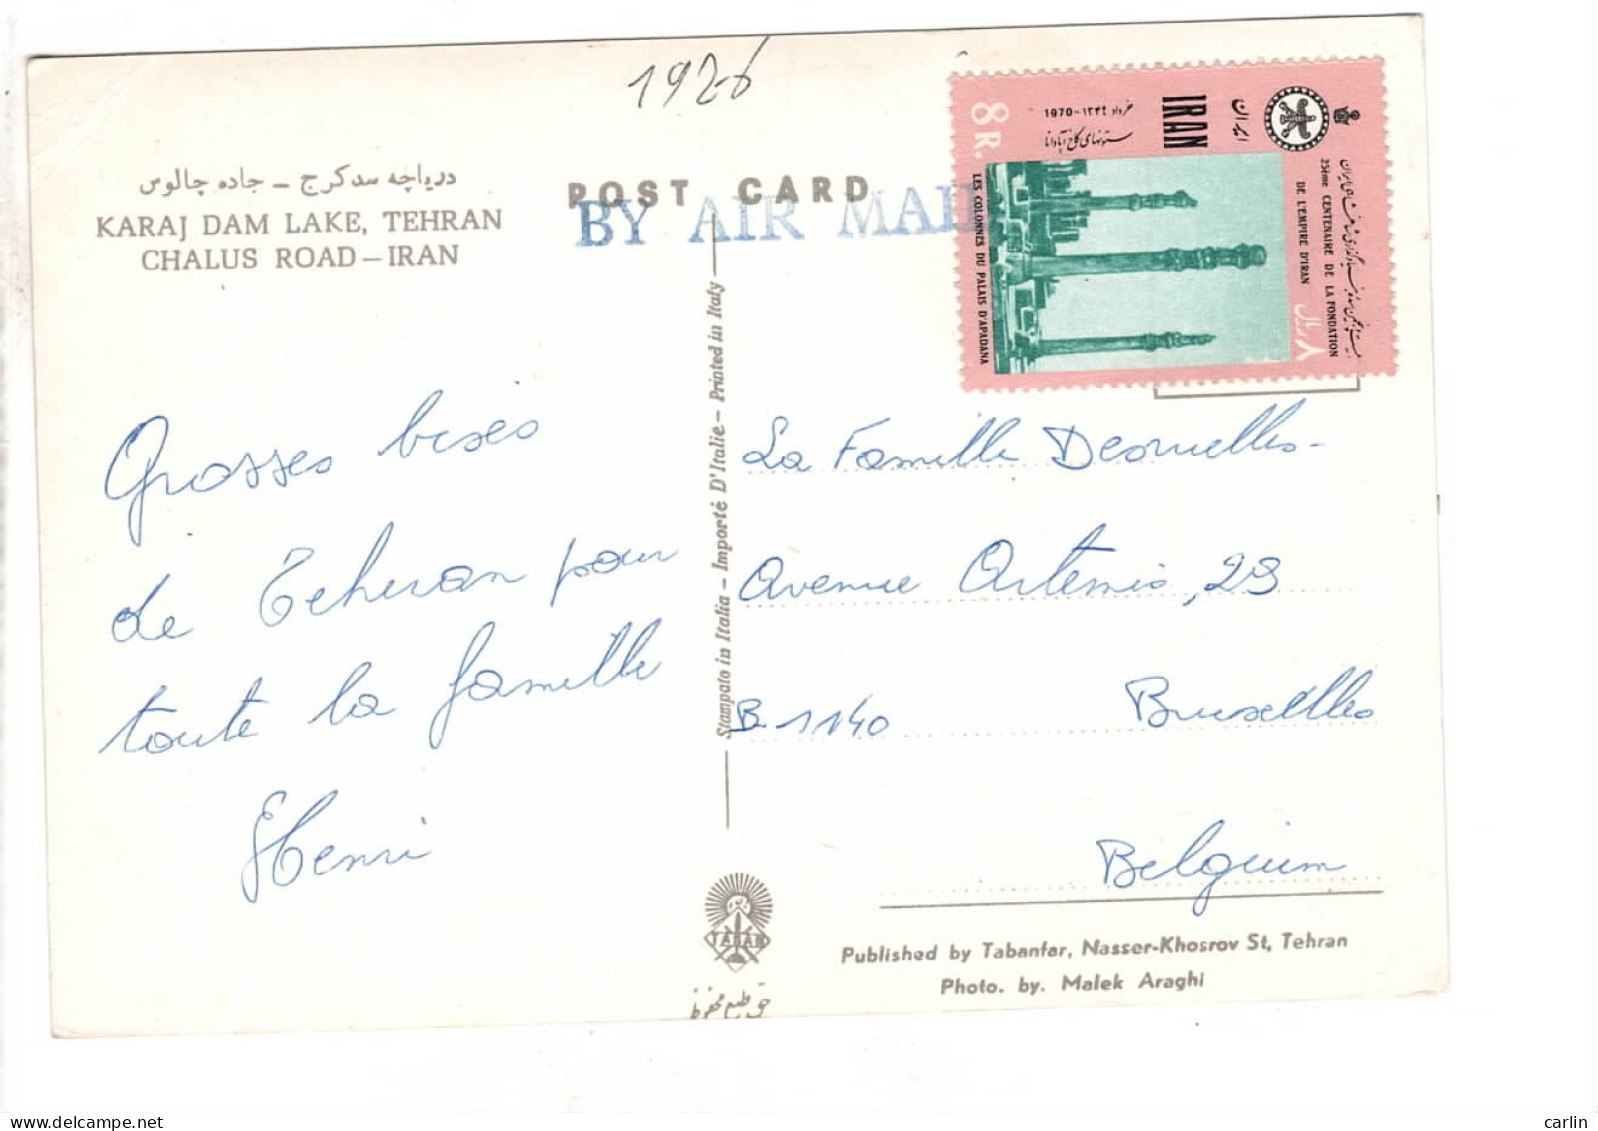 1926
دریاچه سد کرج - جاده چالوس
KARAJ DAM LAKE, TEHRAN
CHALUS ROAD-IRAN
POST CARD
BY AIR MAIL
8 R.
1970-۱۳۴۹ خرداد
ستونهای کاخ آپادانا
IRAN
ایران
LES COLONNES DU PALAIS D'APADANA
25ème CENTENAIRE DE LA FONDATION
DE L'EMPIRE D'IRAN
۸ ریال
Grosses bises
de Teheran pour
toute la famille
Henri
Stampato in Italia - Importé D'Italie - Printed in Italy
La Famille
Avenue Artemis, 23
B. 1140 Bruxelles
Belgium
TABAN
حق طبع محفوظ
Published by Tabanfar, Nasser-Khosrov St, Tehran
Photo. by. Malek Araghi
carlin